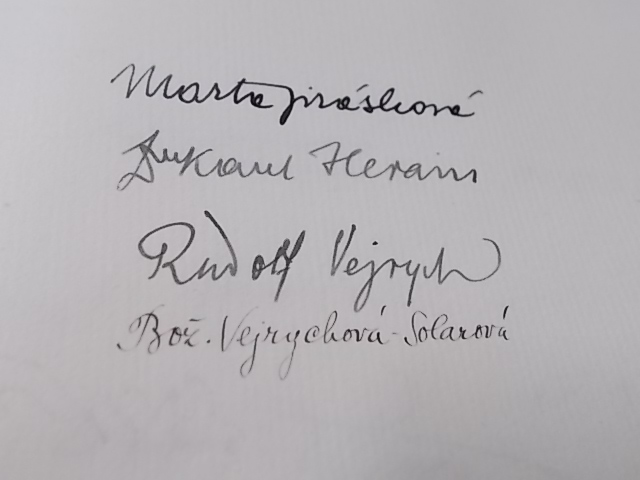 Marta Jirásková
Karel Herain
Rudolf Vejrych
Bož. Vejrychová-Solarová